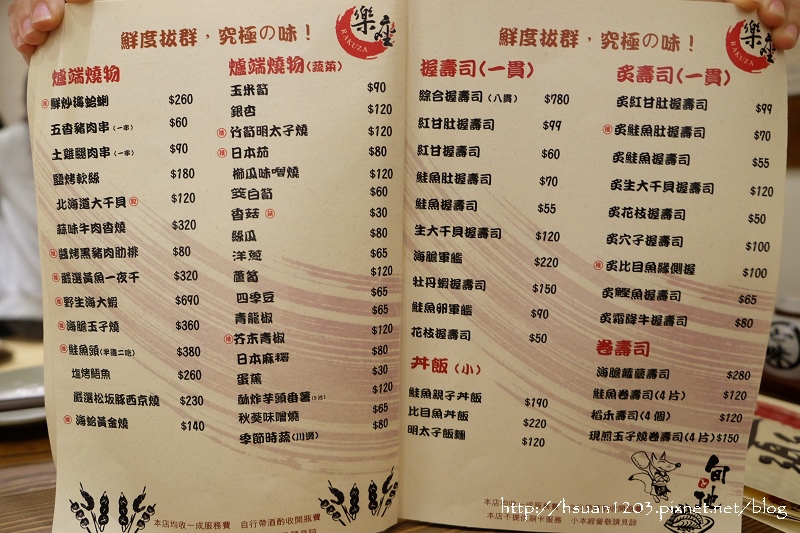 鮮度拔群，究極の味！
樂座
RAKUZA
爐端燒物
鮮炒海蛤蜊 $260
五香豬肉串(一串) $60
土雞腿肉串(一串) $90
鹽烤軟絲 $180
北海道大干貝 $120
蒜味牛肉香燒 $320
醬烤黑豬肉肋排 $80
嚴選黃魚一夜干 $320
野生海大蝦 $690
海膽玉子燒 $360
鮭魚頭(半邊二吃) $380
塩烤鯧魚 $260
嚴選松坂豚西京燒 $230
海蛤黃金燒 $140
爐端燒物(蔬菜)
玉米筍 $90
銀杏 $120
竹筍明太子燒 $120
日本茄 $80
櫛瓜味噌燒 $120
茭白筍 $60
香菇 $30
絲瓜 $80
洋蔥 $35
蘆筍 $120
四季豆 $65
青龍椒 $65
芥末青椒 $120
日本麻糬 $80
蛋蕉 $30
酥炸芋頭番薯 $120
秋葵味噌燒 $65
季節時蔬(川燙) $80
本店均收一成服務費 自行帶酒酌收開瓶費
鮮度拔群，究極の味！
樂座
RAKUZA
握壽司(一貫)
綜合握壽司(八貫) $780
紅甘肚握壽司 $99
紅甘握壽司 $60
鮭魚肚握壽司 $70
鮭魚握壽司 $55
生大干貝握壽司 $120
海膽軍艦 $220
牡丹蝦握壽司 $150
鮭魚卵軍艦 $90
花枝握壽司 $50
丼飯(小)
鮭魚親子丼飯 $190
比目魚丼飯 $220
明太子飯糰 $120
炙壽司(一貫)
炙紅甘肚握壽司 $99
炙鮭魚肚握壽司 $70
炙鮭魚握壽司 $55
炙生大干貝握壽司 $120
炙花枝握壽司 $50
炙穴子握壽司 $100
炙比目魚緣側握 $100
炙鰹魚握壽司 $65
炙霜降牛握壽司 $80
卷壽司
海膽蘿蔓壽司 $280
鮭魚卷壽司(4片) $120
稻禾壽司(4個) $120
現煎玉子燒卷壽司(4片) $150
旬と地
本店不提供刷卡服務 小本經營敬請見諒
http://hsuan1203.pixnet.net/blog